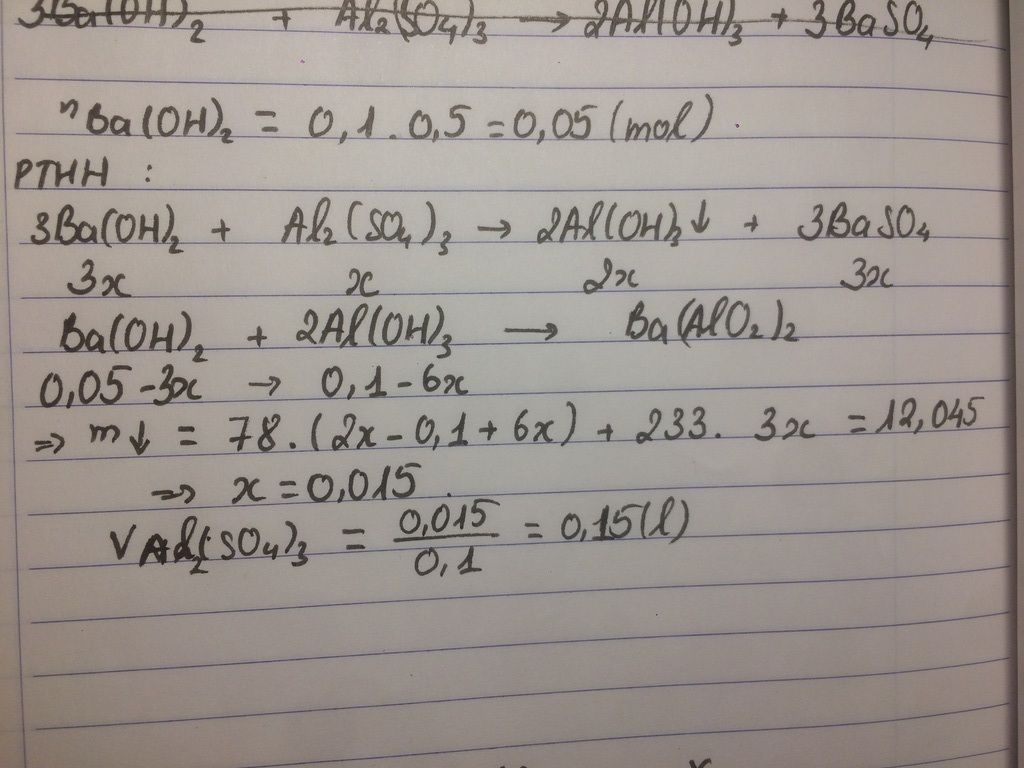 3Ba(OH)₂ + Al₂(SO₄)₃ → 2Al(OH)₃ + 3BaSO₄
nBa(OH)₂ = 0,1 . 0,5 = 0,05 (mol).
PTHH :
3Ba(OH)₂ + Al₂(SO₄)₃ → 2Al(OH)₃↓ + 3BaSO₄
3x x 2x 3x
Ba(OH)₂ + 2Al(OH)₃ → Ba(AlO₂)₂
0,05 - 3x → 0,1 - 6x
⇒ m↓ = 78.(2x - 0,1 + 6x) + 233. 3x = 12,045
⇒ x = 0,015.
V Al₂(SO₄)₃ = 0,015/0,1 = 0,15(l)